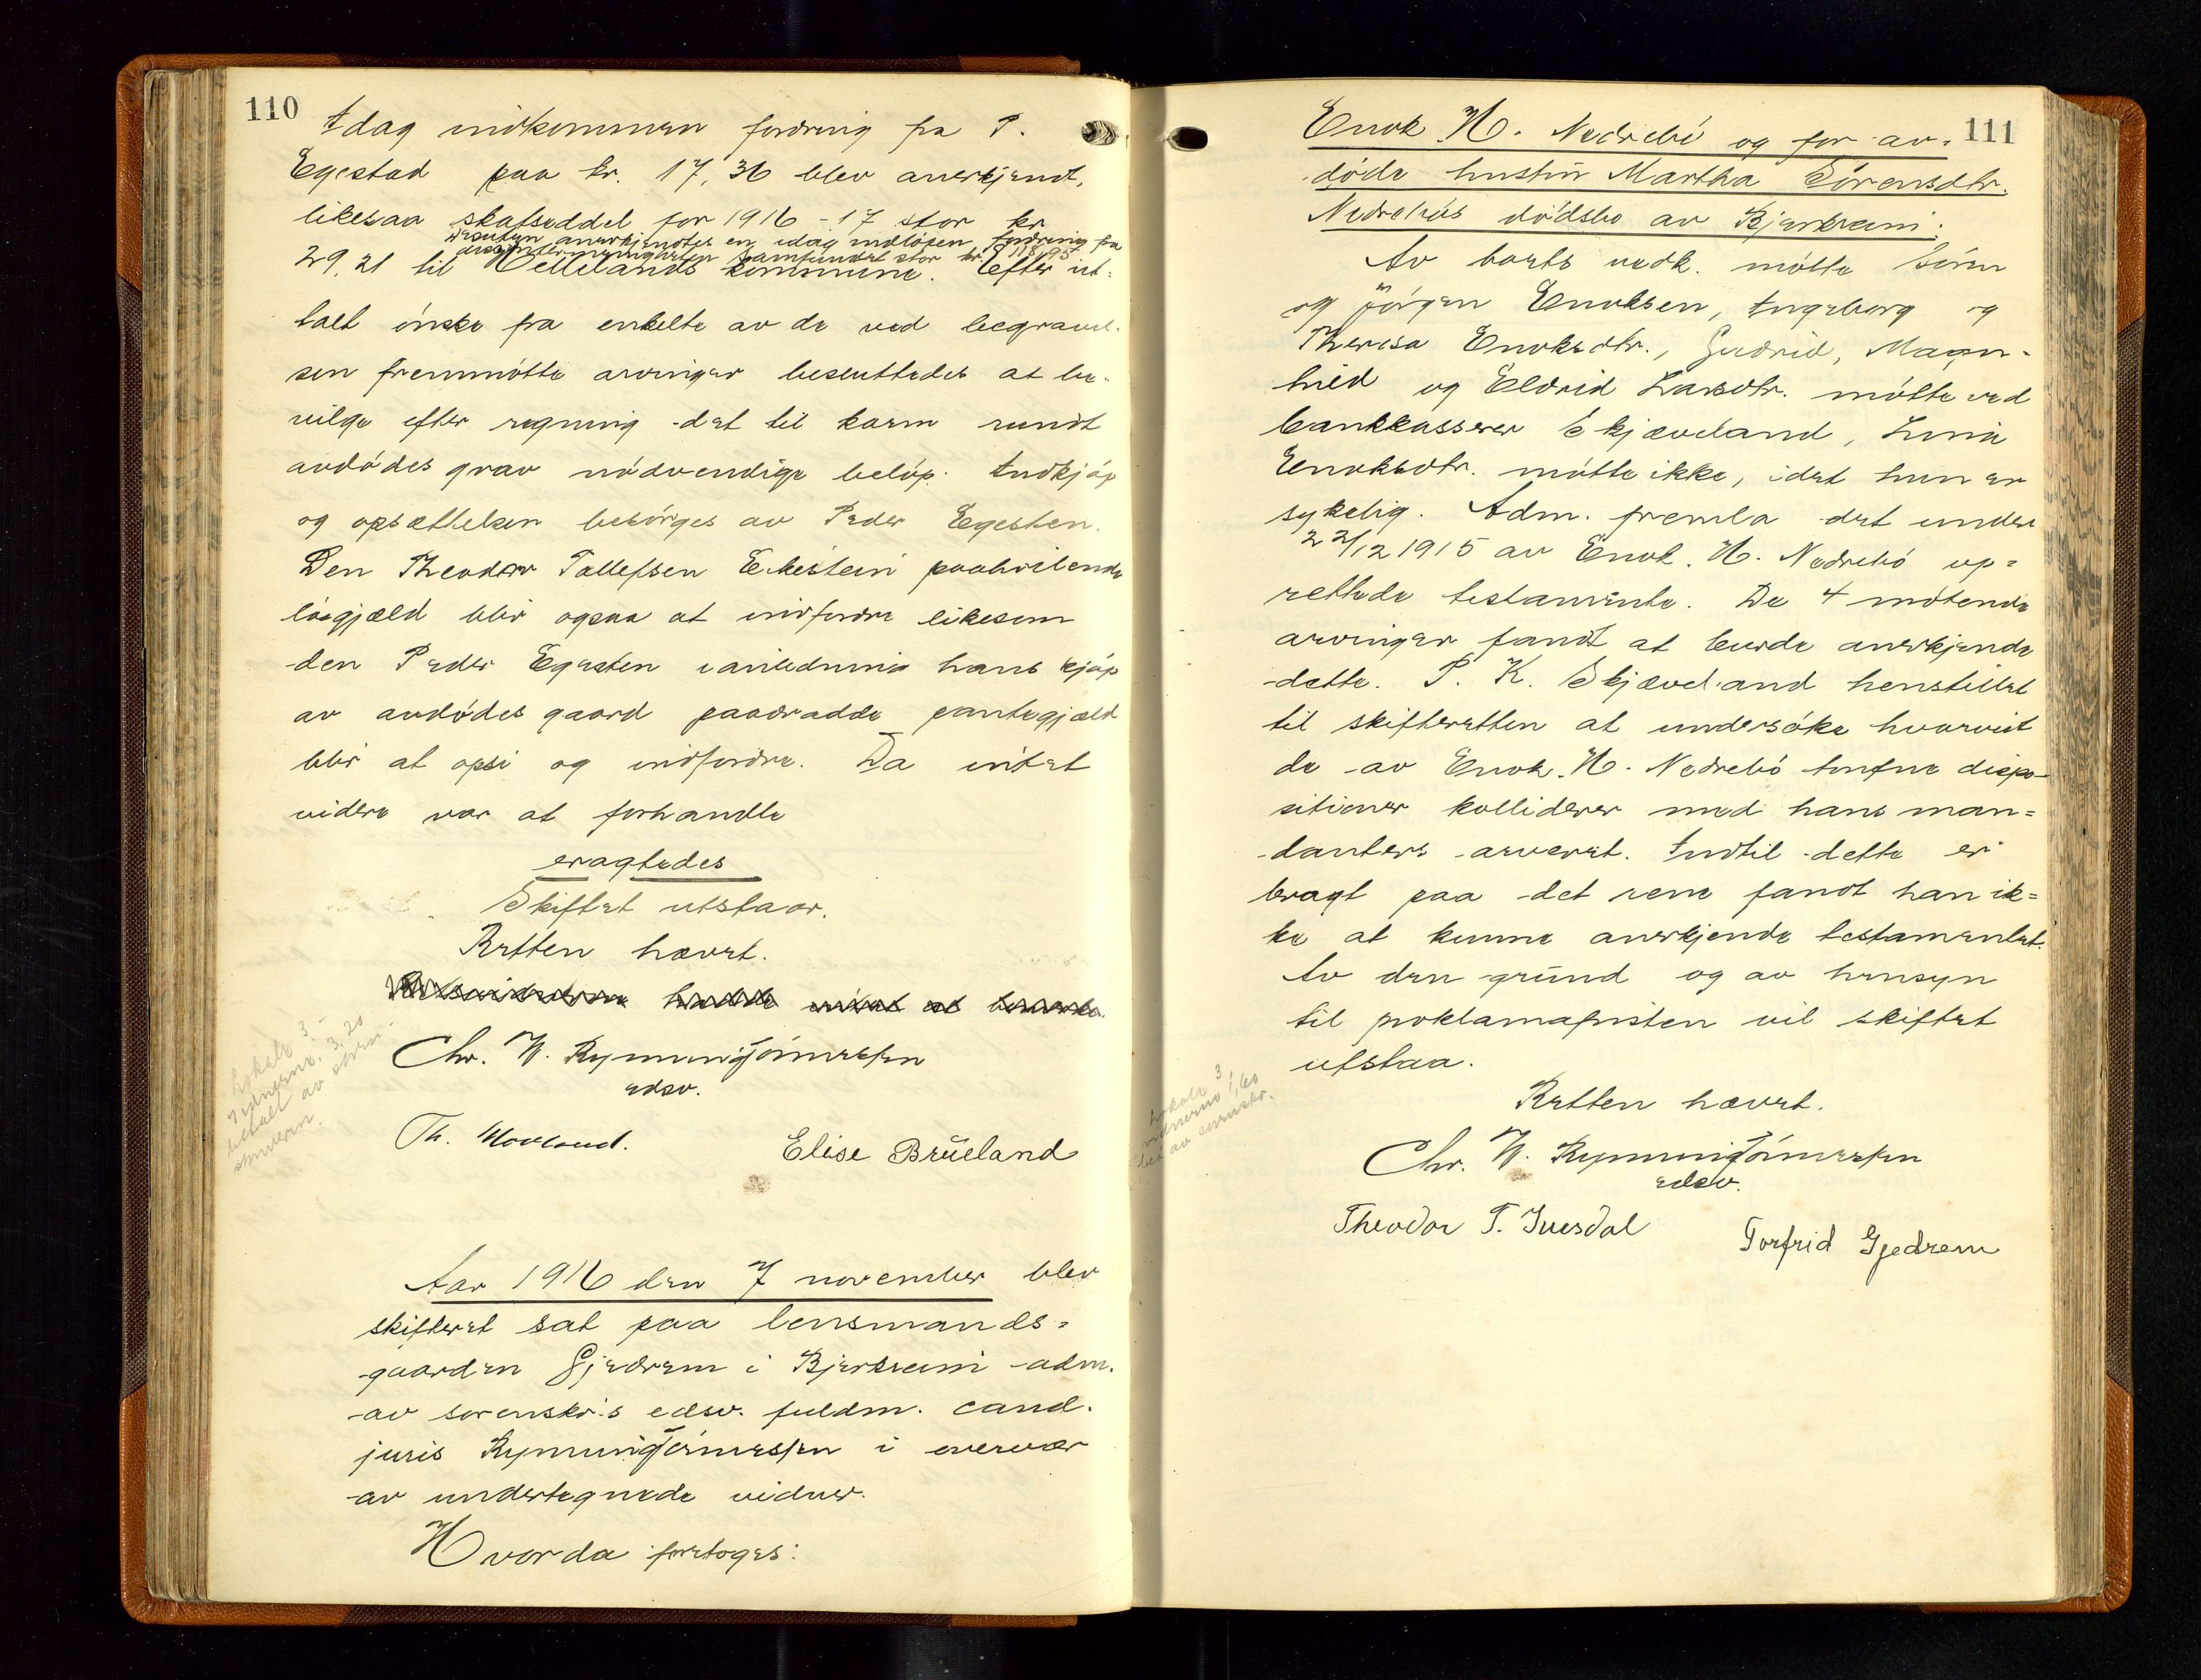 110
Idag indkommen fordring fra P.
Egestad paa kr. 17,36 blev anerkjendt,
likesaa skatseddel for 1916-17 stor kr.
desuten anerkjendtes en idag indløben fordring fra
samfundet stor kr. 118,95
29,21 til Hellelands kommune. Efter ut-
talt ønske fra enkelte av de ved begravel-
sen fremmøtte arvinger besluttedes at be-
vilge efter regning det til karm rundt
avdødes grav nødvendige beløp. Indkjøp
og opsættelsen besørges av Peder Egesten.
Den Theodor Tollefsen Eikestein paahvilende
løsgjæld blir ogsaa at indfordre likesom
den Peder Egesten i anledning hans kjøp
av avdødes gaard paadradde pantegjæld
blir at opsi og indfordre. Da intet
videre var at forhandle
eragtedes
Skiftet utstaar.
Retten hævet.
Chr. W. Rynning Tønnessen
edsv.
Th. Hovland. Elise Brüeland
lokale 3 -
vidnerne. 3,20
betalt av soren-
skriveren.
Aar 1916 den 7 november blev
skifteret sat paa lensmands-
gaarden Gjedrem i Bjerkreim adm.
av sorenskr.s edsv. fuldm. cand.
juris Rynning Tønnessen i overvær
av undertegnede vidner.
Hvorda foretoges:
111
Enok H. Nedrebø og for av-
døde hustru Martha Sørensdtr.
Nedrebøs dødsbo av Bjerkreim:
Av boets vedk. møtte Søren
og Jørgen Enoksen, Ingeborg og
Theresa Enoksdtr., Gudrid, Magn-
hild og Eldrid Larsdtr. møtte ved
bankkasserer Skjæveland, Lina
Enoksdtr. møtte ikke, idet hun er
sykelig. Adm. fremla det under
22/12 1915 av Enok H. Nedrebø op-
rettede testamente. De 4 møtende
arvinger fandt at burde anerkjende
dette. P. K. Skjæveland henstillet
til skifteretten at undersøke hvorvidt
de av Enok H. Nedrebø trufne dispo-
sitioner kolliderer med hans man-
danters arveret. Indtil dette er
bragt paa det rene fandt han ik-
ke at kunne anerkjende testamentet.
Av den grund og av hensyn
til proklamafristen vil skiftet
utstaa.
Retten hævet.
Chr. W. Rynning Tønnessen
edsv.
Theodor T. Ivesdal Torfrid Gjedrem
lokale 3,
vidnerne 1,60
bet av sorenskr.